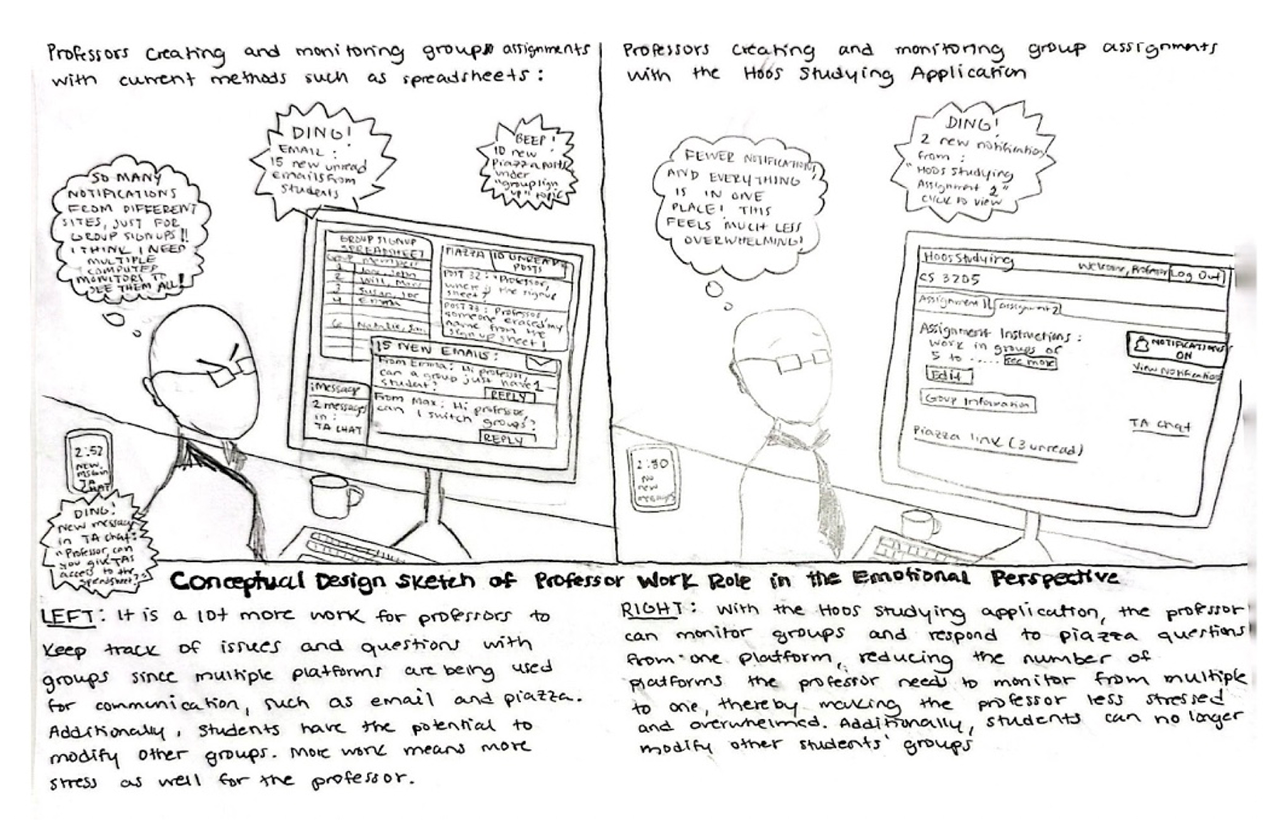 Professors creating and monitoring groups assignments
with current methods such as spreadsheets:
SO MANY
NOTIFICATIONS
FROM DIFFERENT
SITES, JUST FOR
GROUP SIGNUPS!!
I THINK I NEED
MULTIPLE
COMPUTER
MONITORS TO
SEE THEM ALL!
DING!
EMAIL:
15 new unread
emails from
students
BEEP!
10 new
Piazza posts
under
"group sign
up" topic
GROUP SIGNUP
SPREADSHEET
Group Members
1
2
3
4 Emma
6
PIAZZA 10 UNREAD
POSTS
POST 32: "Professor,
where is the signup
sheet?
POST 33: Professor
someone erased my
name from the
signup sheet!
15 NEW EMAILS:
From Emma: Hi professor
can a group just have 1
student?
REPLY
From Max: Hi professor
can I switch groups?
REPLY
iMessage
2 messages
in:
TA CHAT
2:52
NEW
MSG in
TA
CHAT
DING!
New message
in TA chat:
"Professor, can
you give TAs
access to the
spreadsheet?"
Professors creating and monitoring group assignments
with the Hoos Studying Application
FEWER NOTIFICATIONS
AND EVERYTHING
IS IN ONE
PLACE! THIS
FEELS MUCH LESS
OVERWHELMING!
DING!
2 new notifications
from:
"Hoos Studying
Assignment 2"
CLICK TO VIEW
HoosStudying
Welcome, Professor Log Out
CS 3205
Assignment 1 Assignment 2
Assignment Instructions:
Work in groups of
5 to ..... see more
Edit
Group Information
Piazza link (3 unread)
NOTIFICATIONS
ON
View Notifications
TA chat
No
new
messages
Conceptual Design Sketch of Professor Work Role in the Emotional Perspective
LEFT: It is a lot more work for professors to
keep track of issues and questions with
groups since multiple platforms are being used
for communication, such as email and piazza.
Additionally, students have the potential to
modify other groups. More work means more
stress as well for the professor.
RIGHT: With the Hoos Studying application, the professor
can monitor groups and respond to piazza questions
from one platform, reducing the number of
platforms the professor need to monitor from multiple
to one, thereby making the professor less stressed
and overwhelmed. Additionally, students can no longer
modify other students' groups